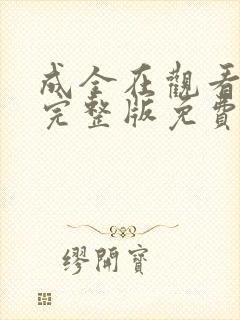 成全在觀看
完整版免費
繆開寶